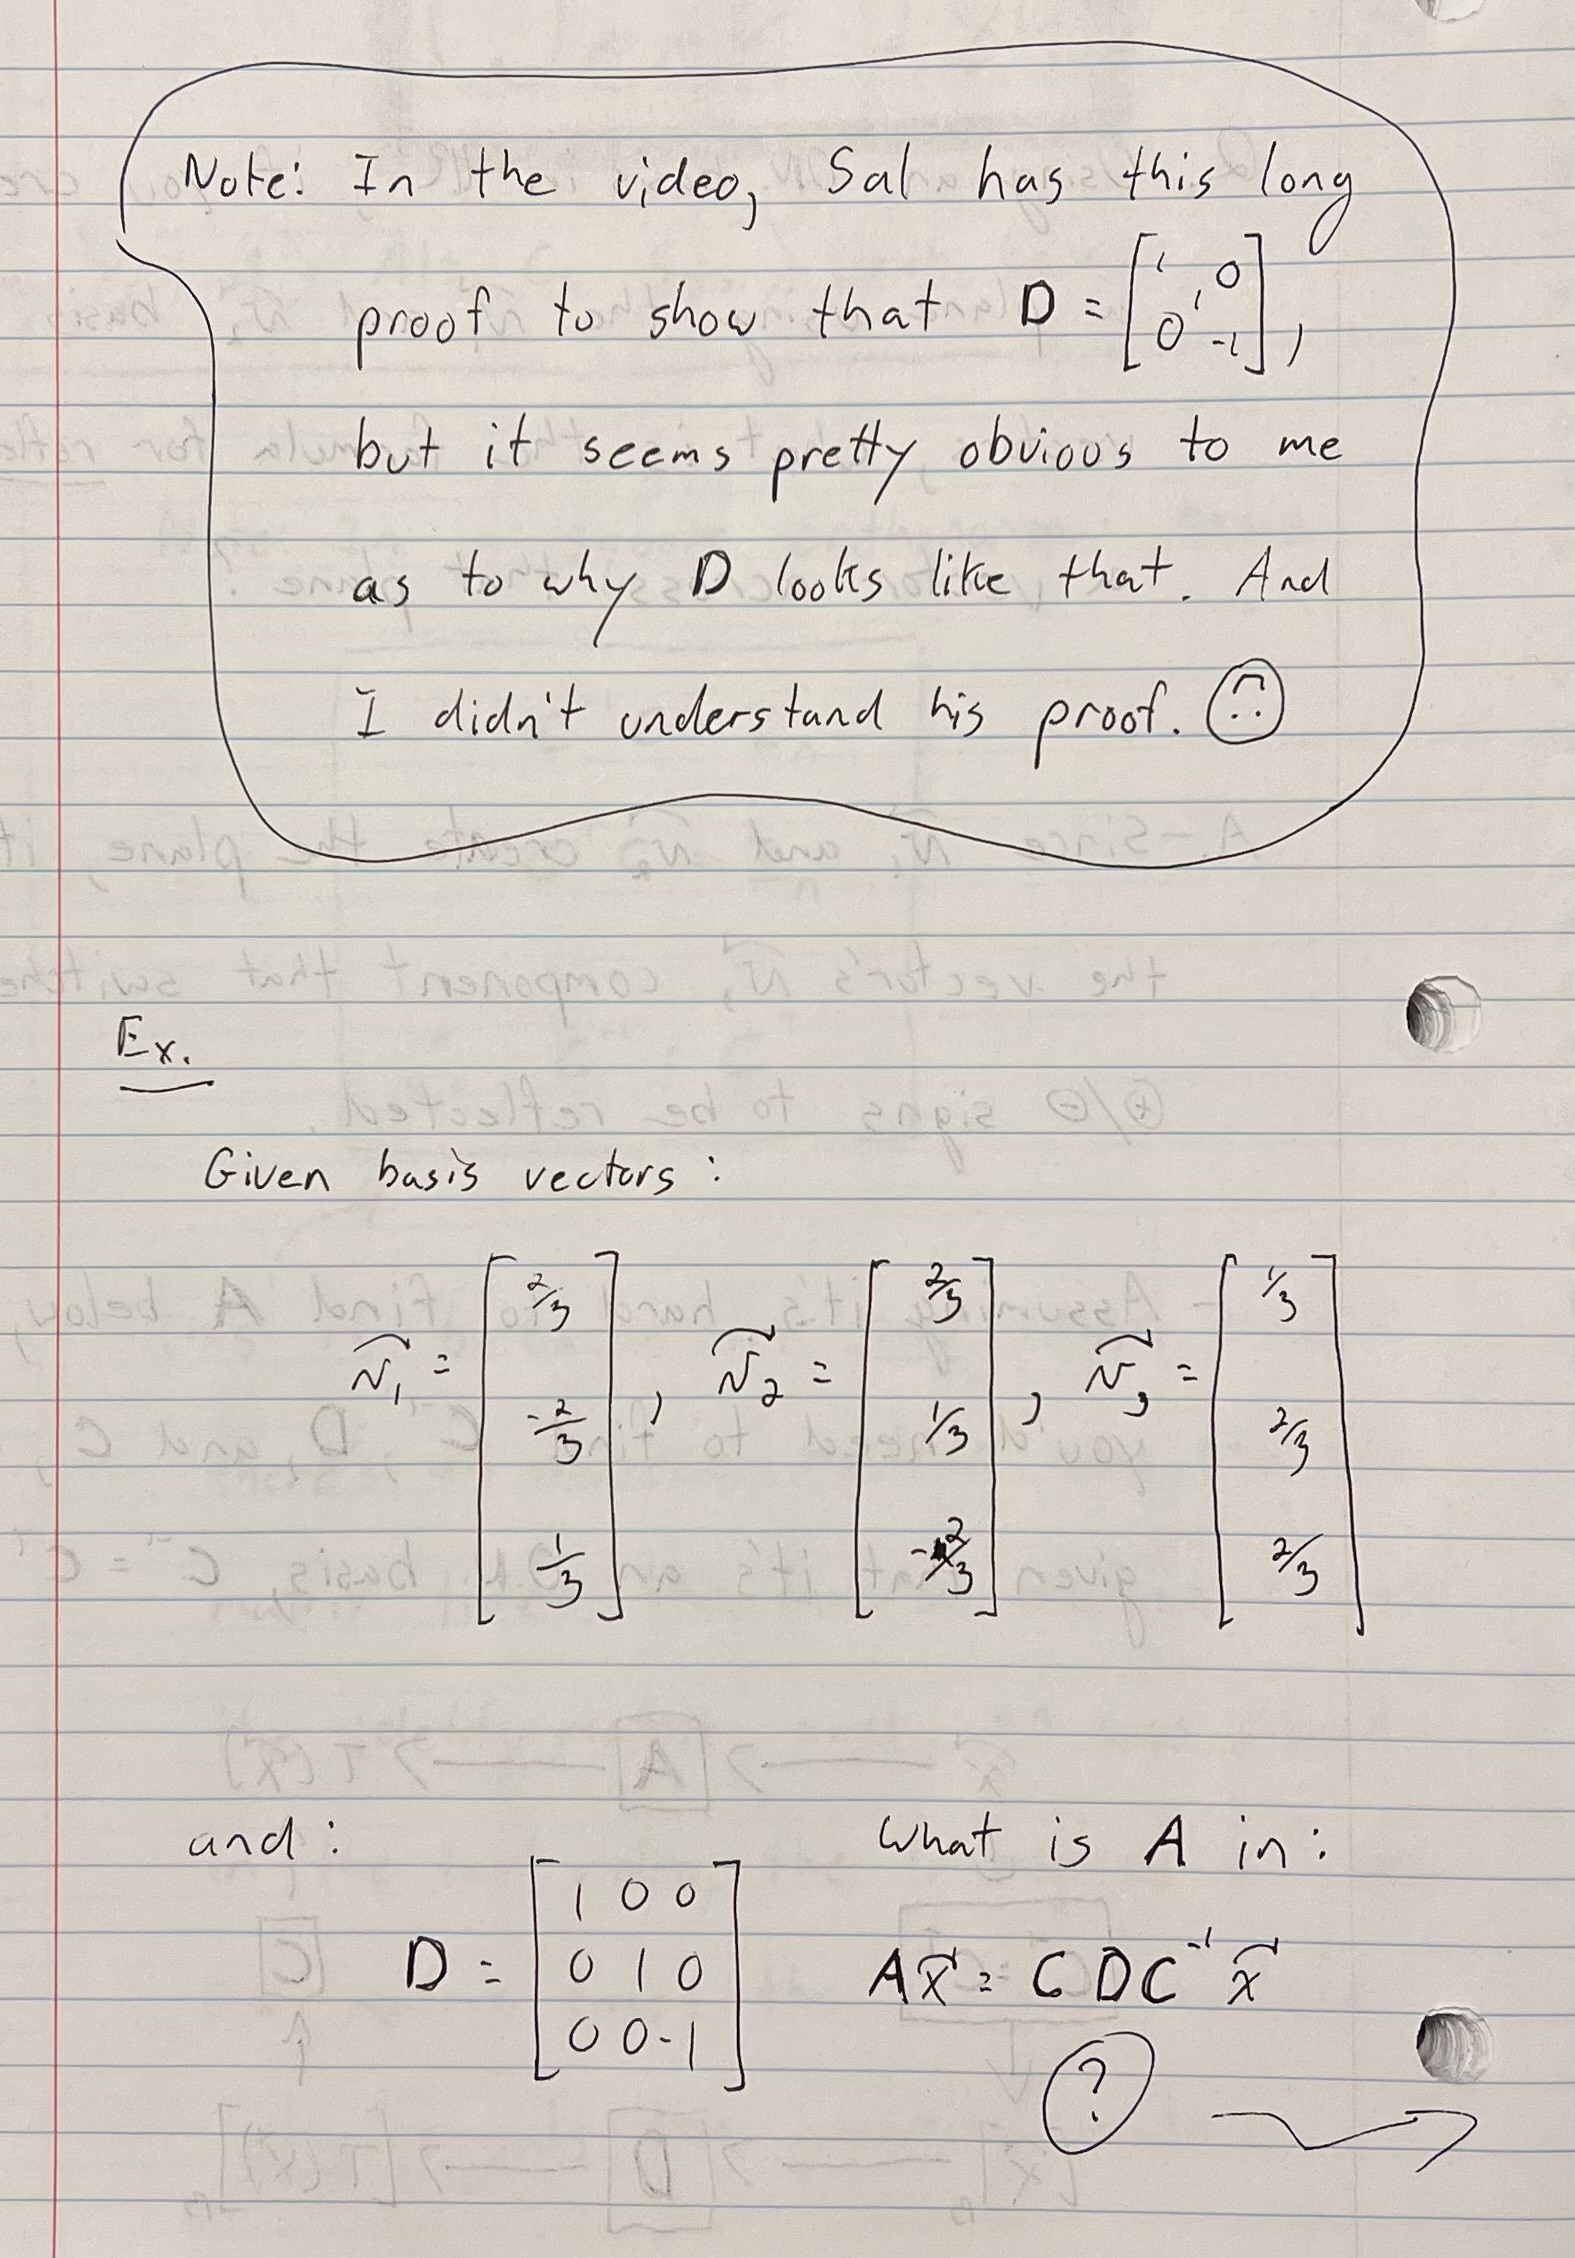 Note: In the video, Sal has this long
proof to show that D = [1 0 1 0 -1],
but it seems pretty obvious to me
as to why D looks like that. And
I didn't understand his proof.
Ex.
Given basis vectors:
v₁ = [2/3 -2/3 1/3], v₂ = [2/3 1/3 -2/3], v₃ = [1/3 2/3 2/3]
and: What is A in:
D = [1 0 0 0 1 0 0 0 -1] Ax = CDC⁻¹x
?